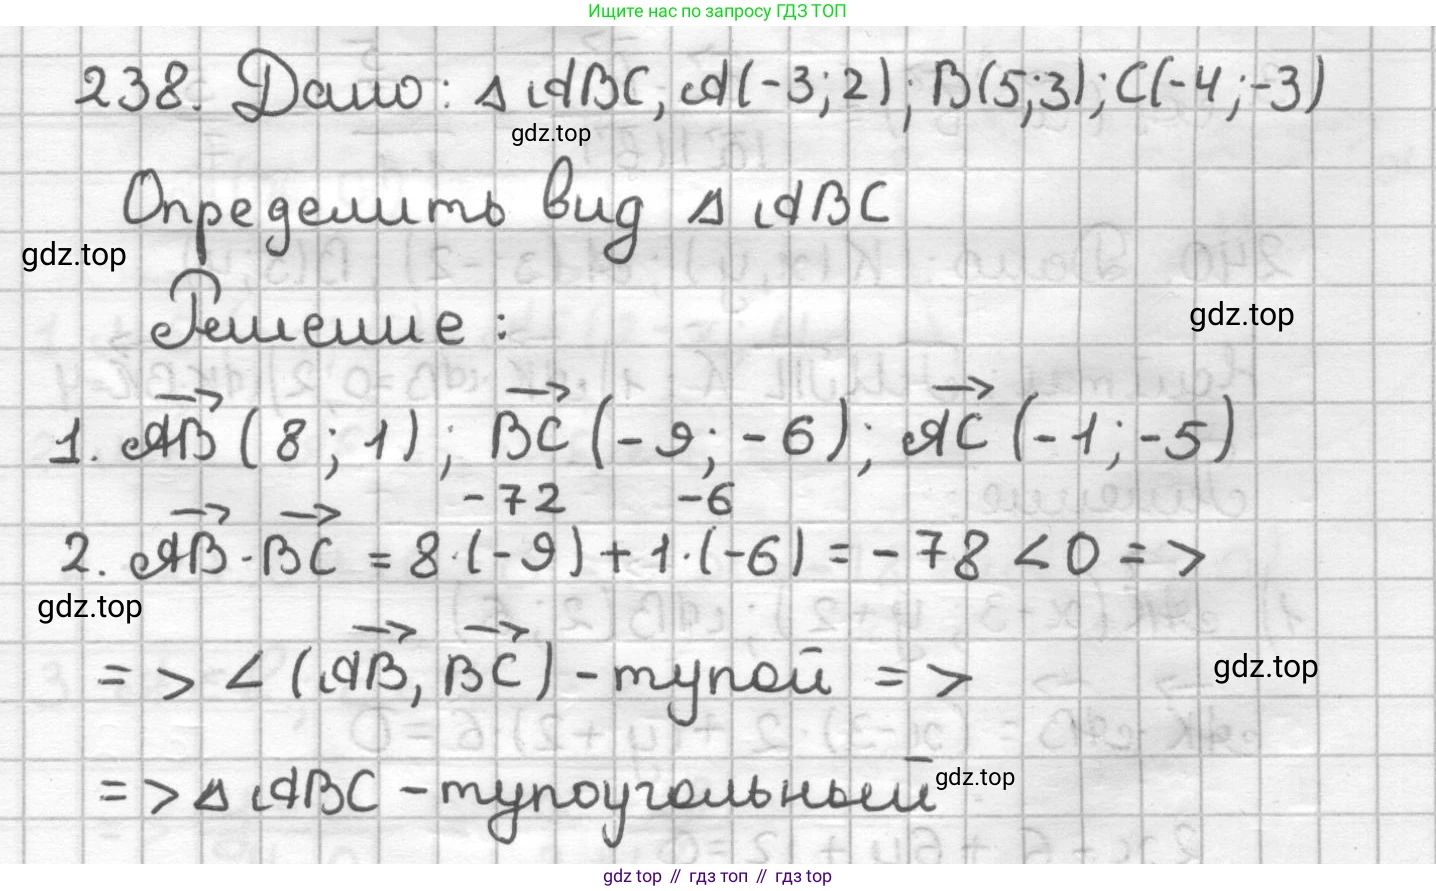 Ищите нас по запросу ГДЗ ТОП
238. Дано: △ABC, A(-3; 2); B(5; 3); C(-4; -3)
gdz.top
Определить вид △ABC
gdz.top
Решение:
gdz.top
1. AB (8; 1); BC (-9; -6); AC (-1; -5)
-72 -6
2. AB · BC = 8·(-9) + 1·(-6) = -78 < 0 =>
gdz.top
=> ∠(AB, BC) - тупой =>
gdz.top
=> △ABC - тупоугольный
gdz.top
gdz top // гдз топ // гдз top